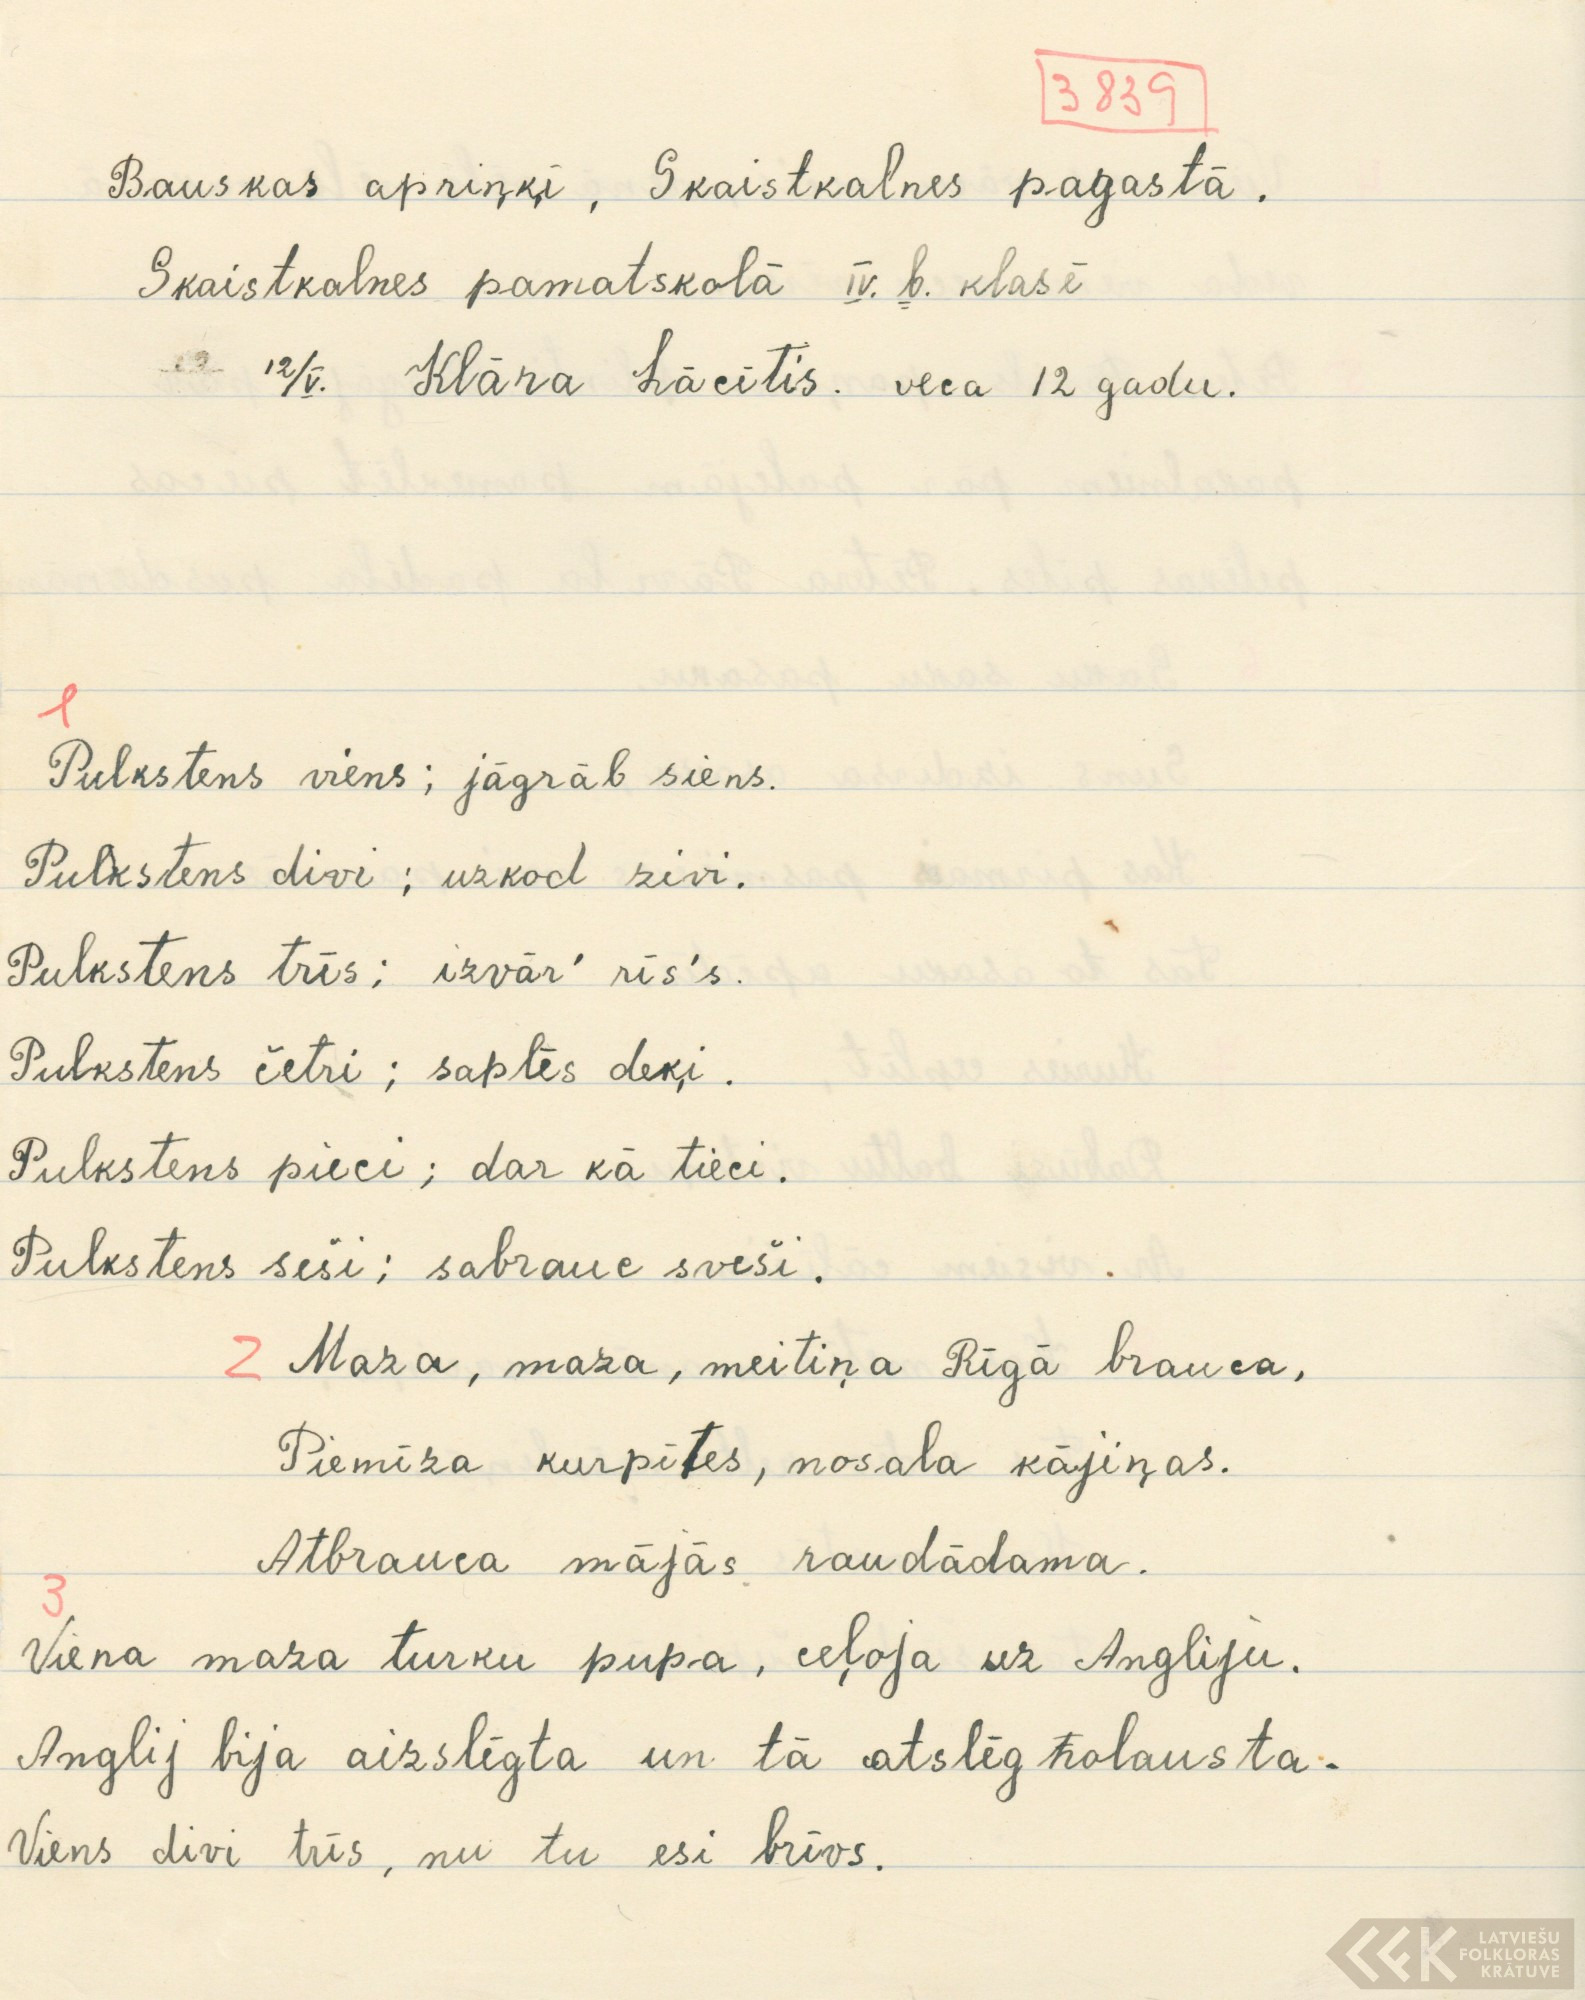 3839
Bauskas apriņķi, Skaistkalnes pagastā.
Skaistkalnes pamatskolā IV. b. klasē
12/V. Klāra Lācītis. veca 12 gadu.
1
Pulkstens viens; jāgrāb siens.
Pulkstens divi; uzkod zivi.
Pulkstens trīs; izvār' rīs's.
Pulkstens četri; saplēs deķi.
Pulkstens pieci; dar kā tieci.
Pulkstens seši; sabrauc sveši.
2 Maza, maza, meitiņa Rīgā brauca,
Piemiza kurpītes, nosala kājiņas.
Atbrauca mājās raudādama.
3
Viena maza turku pupa, ceļoja uz Angliju.
Anglij bija aizslēgta un tā atslēg nolausta.
Viens divi trīs, nu tu esi brīvs.
LATVIEŠU
FOLKLORAS
KRĀTUVE